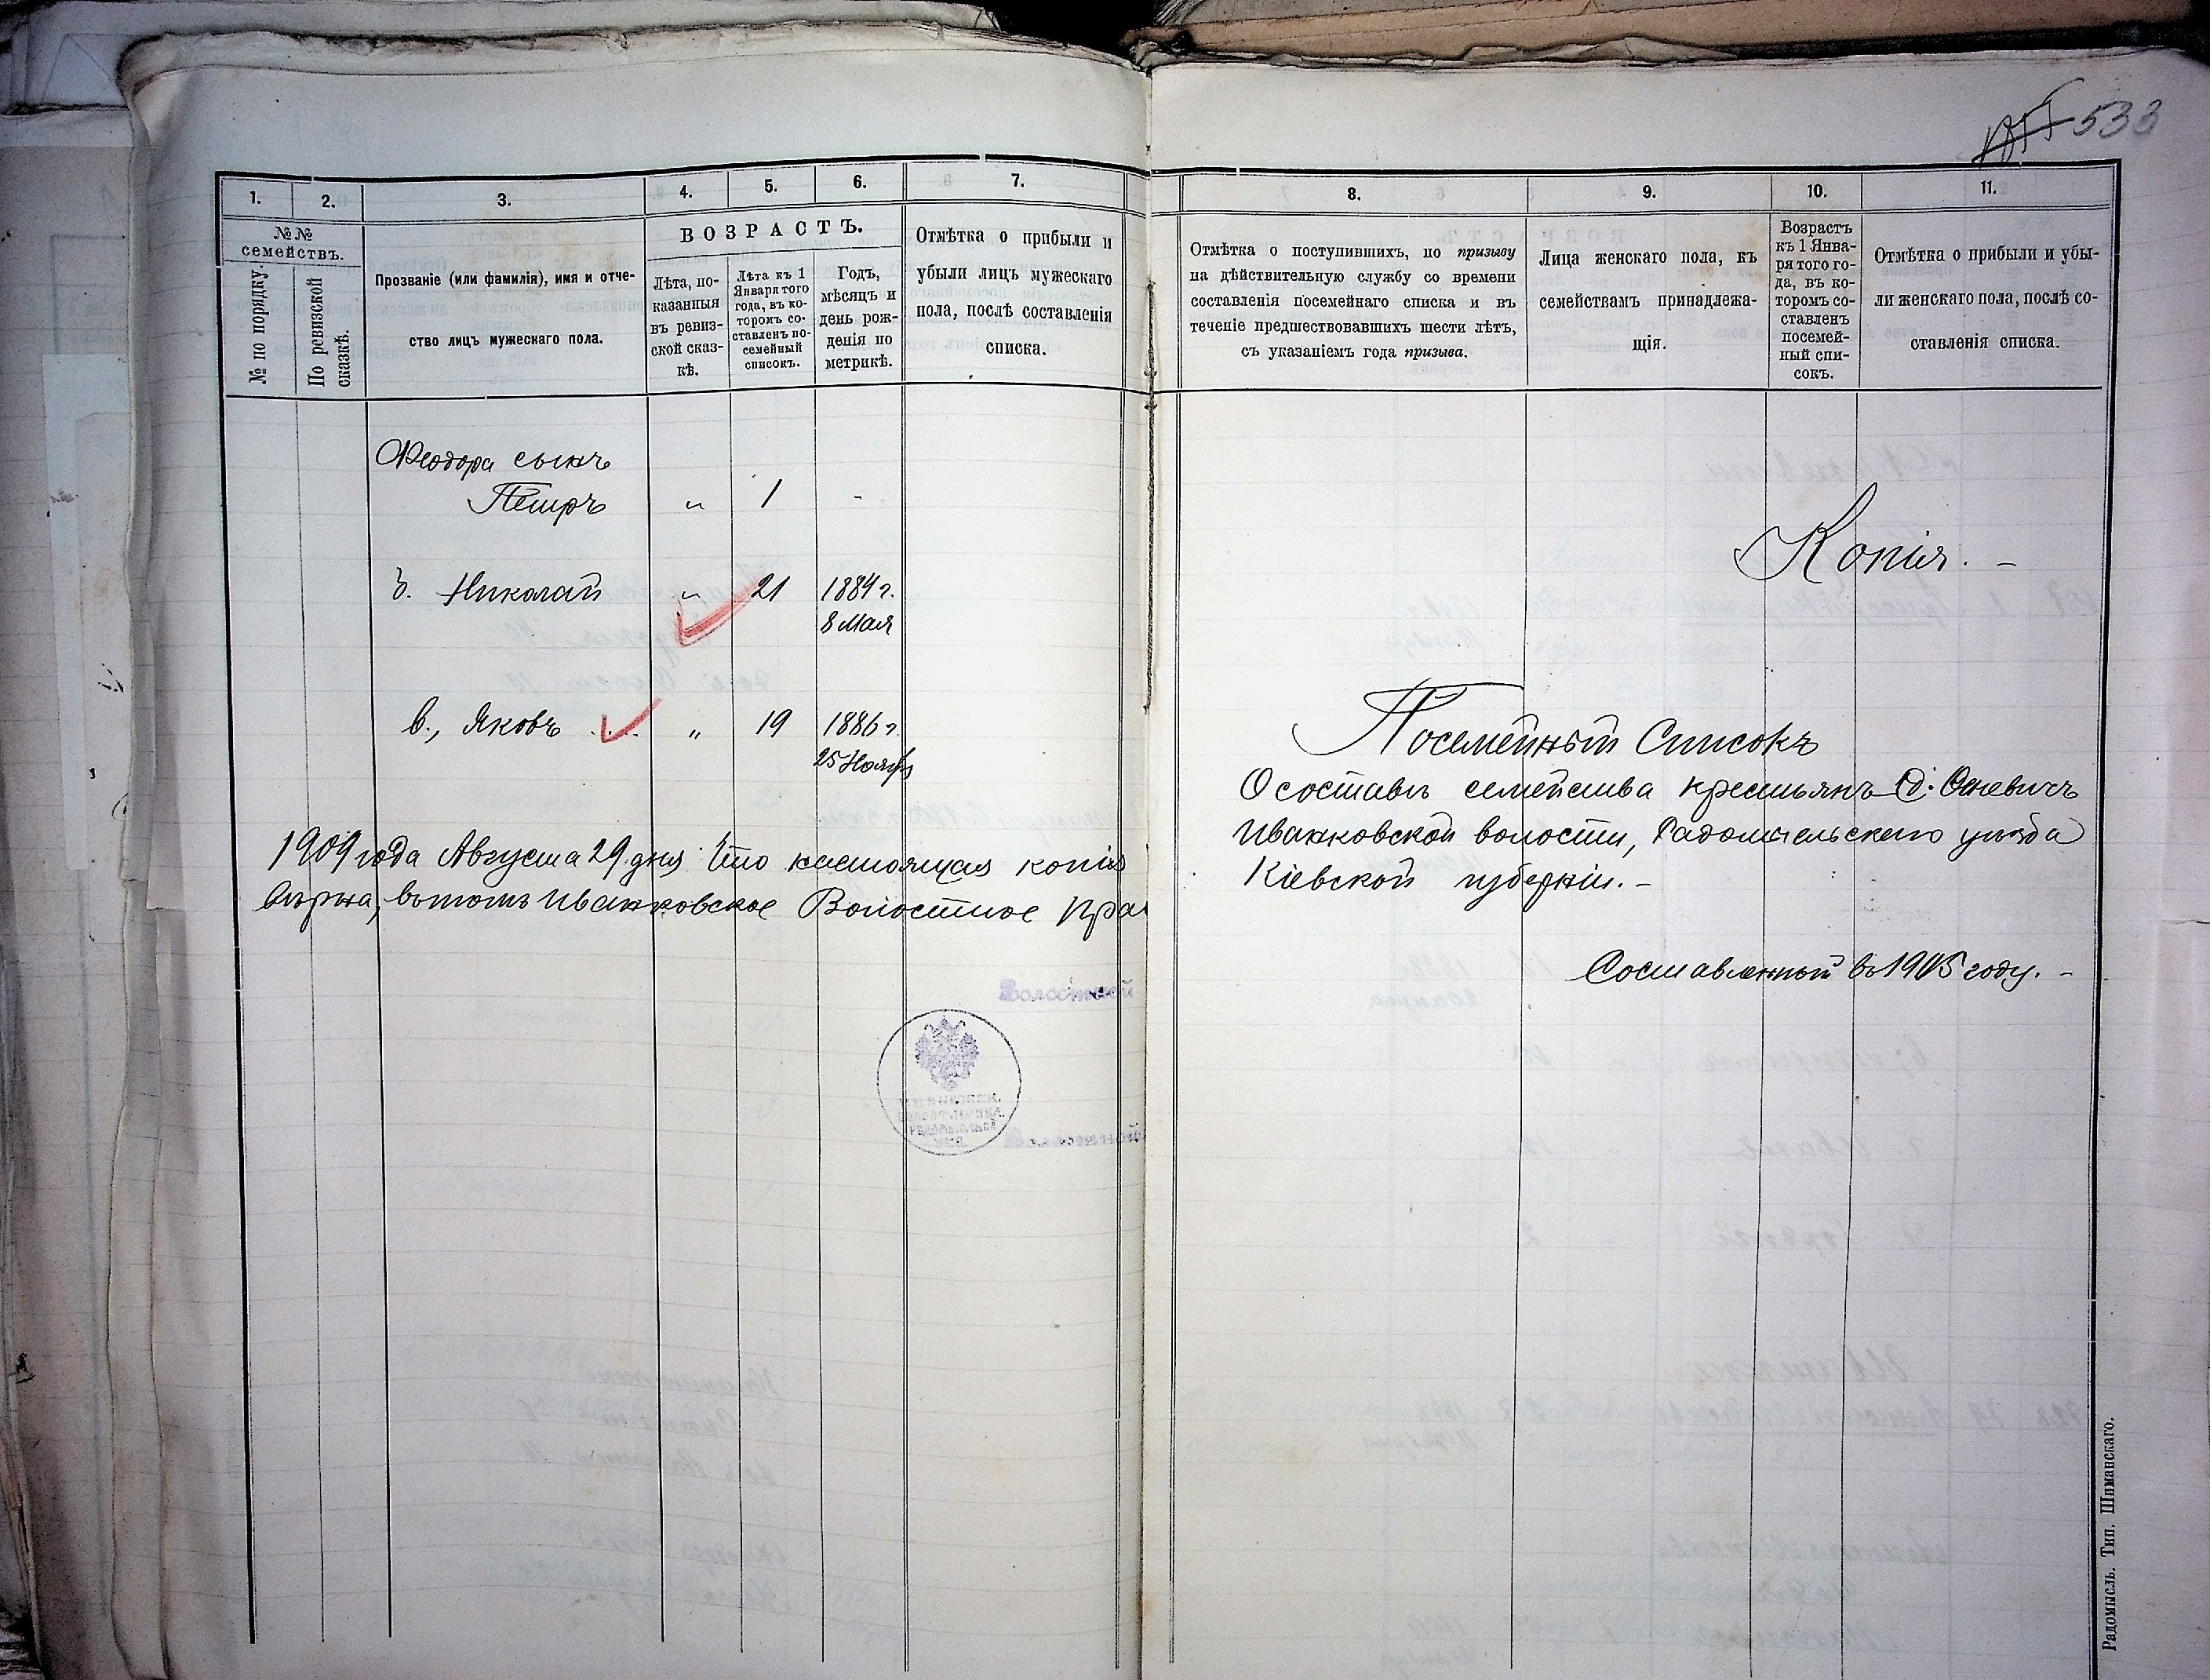 533
1.
2.
3.
4.
5.
6.
7.
№№ семействъ.
№ по порядку.
По ревизской сказкѣ.
Прозваніе (или фамилія), имя и отче-
ство лицъ мужескаго пола.
ВОЗРАСТЪ.
Лѣта, по-
казанныя
въ ревиз-
ской сказ-
кѣ.
Лѣта къ 1
Января того
года, въ ко-
торомъ со-
ставленъ по-
семейный
списокъ.
Годъ,
мѣсяцъ и
день рож-
денія по
метрикѣ.
Отмѣтка о прибыли и
убыли лицъ мужескаго
пола, послѣ составленія
списка.
Феодора сынъ
Петръ " 1 -
Николай " 21 1884 г.
8 Мая
в., Яковъ " 19 1886 г.
25 Ноябр
1909 года Августа 29 дня Что настоящая копія
вѣрна, въ томъ Иванковское Волостное Пра
Волостной
8.
9.
10.
11.
Отмѣтка о поступившихъ, по призыву
на дѣйствительную службу со времени
составленія посемейнаго списка и въ
теченіе предшествовавшихъ шести лѣтъ,
съ указаніемъ года призыва.
Лица женскаго пола, къ
семействамъ принадлежа-
щія.
Возрастъ
къ 1 Янва-
ря того го-
да, въ ко-
торомъ со-
ставленъ
посемей-
ный спи-
сокъ.
Отмѣтка о прибыли и убы-
ли женскаго пола, послѣ со-
ставленія списка.
Копія. -
Посемейный Списокъ
О составѣ семейства крестьянъ с. Оневичъ
Иванковской волости, Радомысльскаго уѣзда
Кіевской губерніи. -
Составленный въ 1905 году. -
Радомысль. Тип. Шиманскаго.